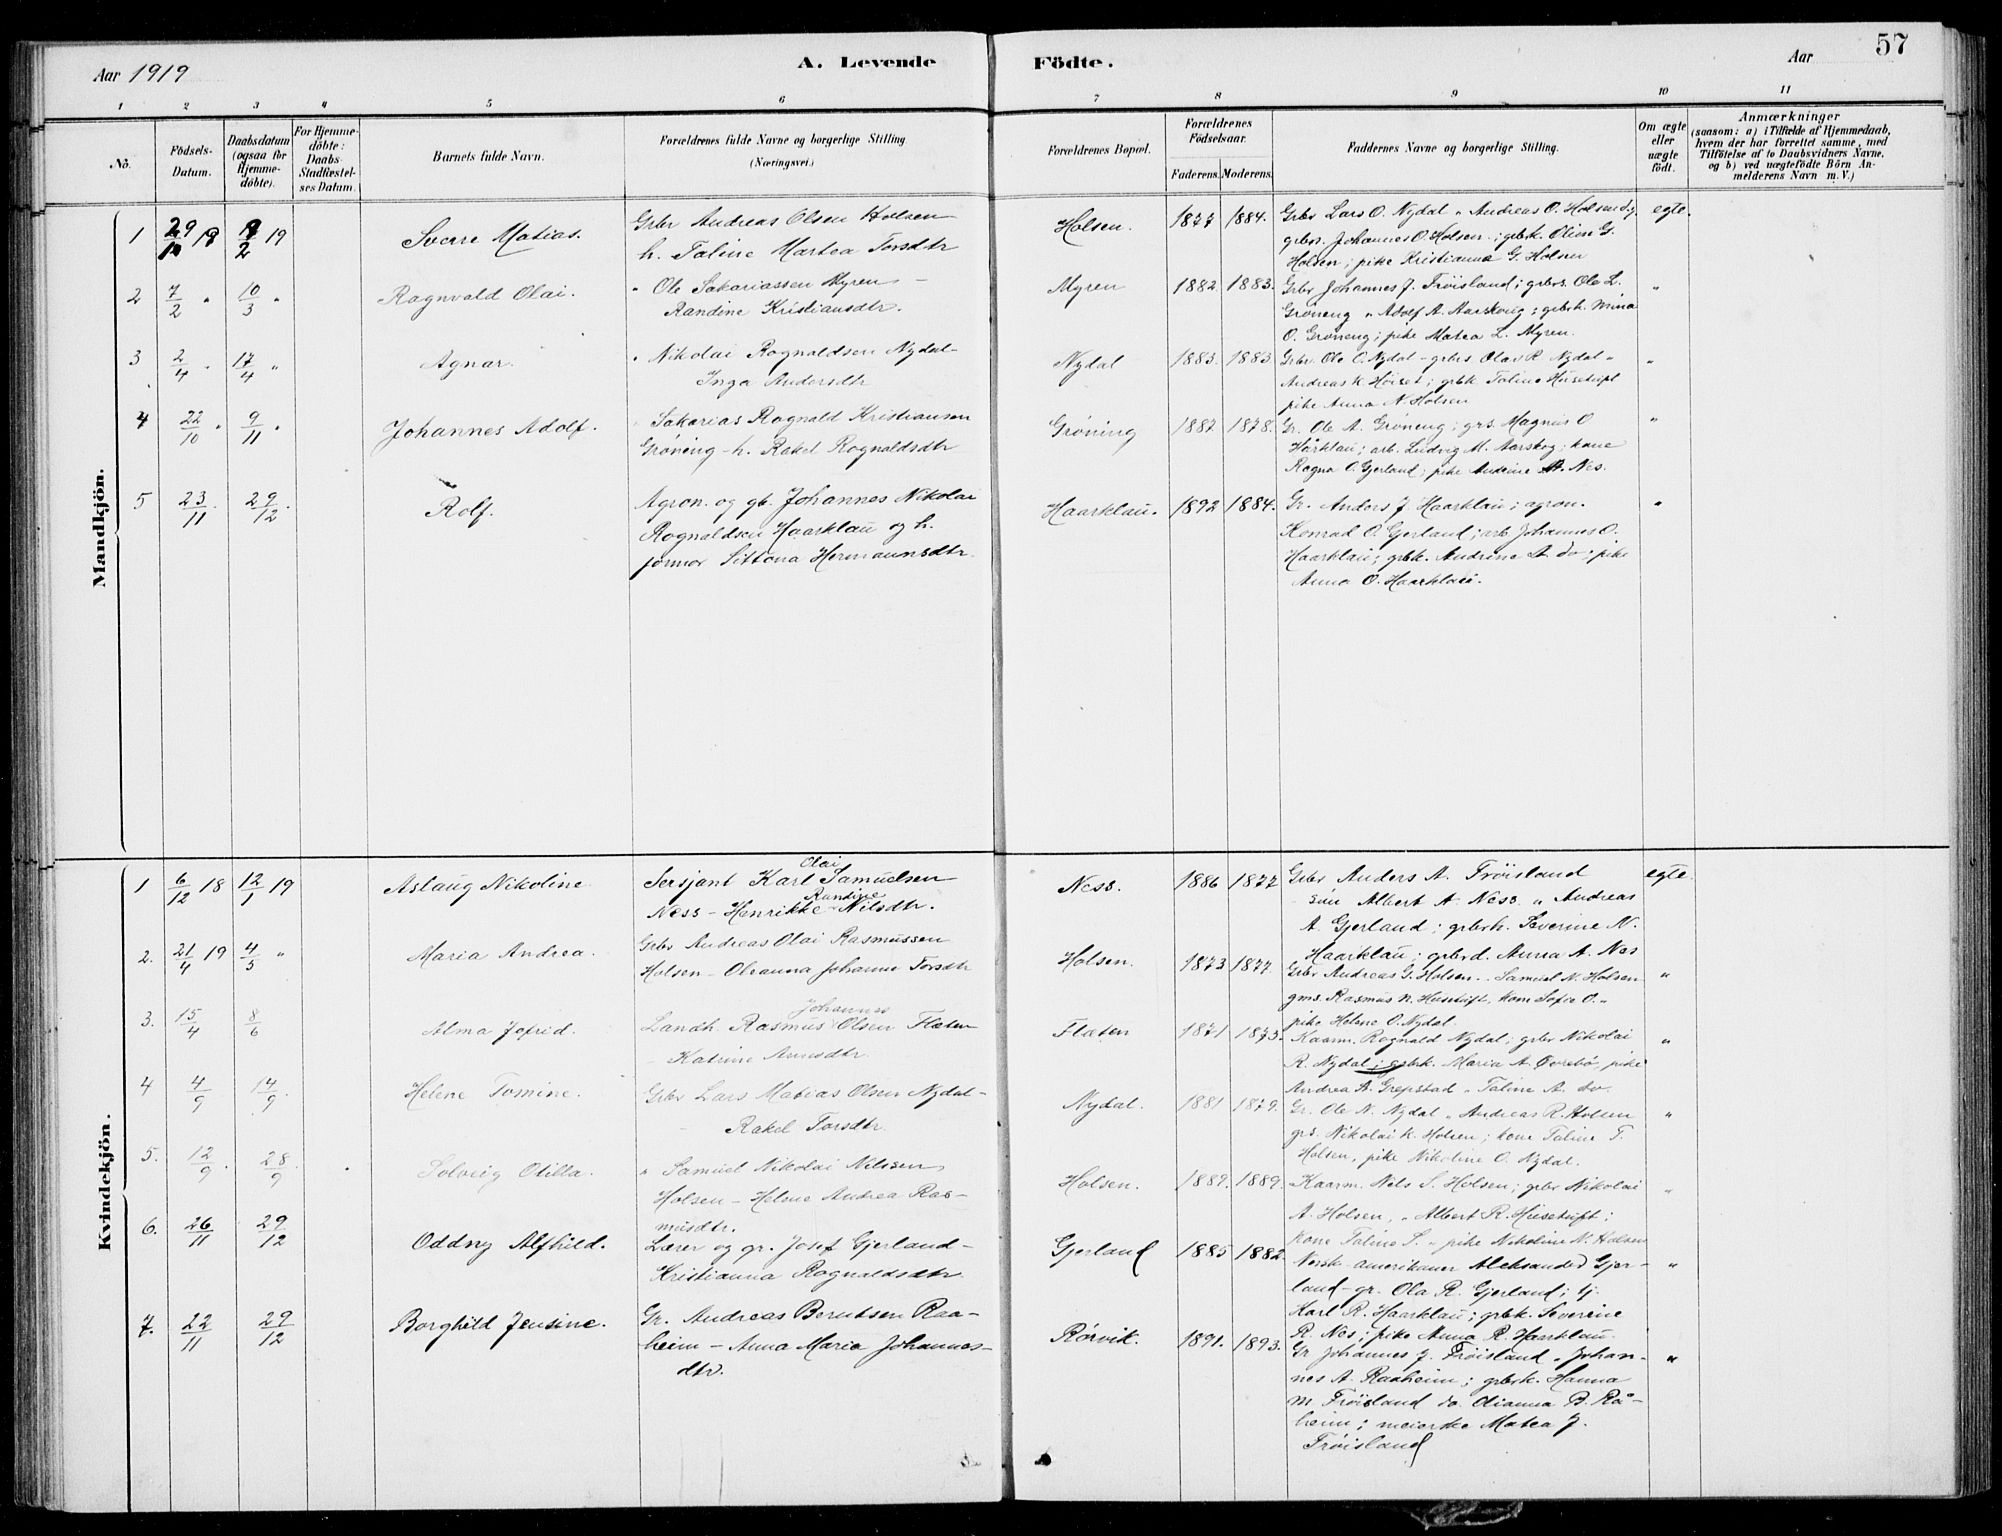 57
Aar 1919
A. Levende Födte.
Aar
1 2 3 4 5 6 7 8 9 10 11
No.
Födsels-
Datum.
Daabsdatum
(ogsaa for
Hjemme-
döbte).
For Hjemme-
döbte:
Daabs-
Stadfæstel-
ses Datum.
Barnets fulde Navn.
Forældrenes fulde Navne og borgerlige Stilling
(Næringsvei.)
Forældrenes Bopæl.
Forældrenes
Födselsaar.
Faderens. Moderens.
Faddernes Navne og borgerlige Stilling.
Om ægte
eller
uægte
födt.
Anmærkninger
(saasom: a) i Tilfælde af Hjemmedaab,
hvem der har forrettet samme, med
Tilföielse af to Daabsvidners Navne,
og b) ved uægtefödte Börn An-
melderens Navn m. V.)
Mandkjön.
1 29/10 18 9/2 19 Sverre Matias.
Grbr Andreas Olsen Holsen
h. Taline Martea Torsdtr
Holsen. 1877 1884.
Grbr Lars O. Nydal " Andreas O. Holsen
grbrs. Johannes O. Holsen; grbk. Olien G.
Holsen; pike Kristianna G. Holsen
egte.
2 7/2 " 10/3 " Ragnvald Olai.
" Ole Sakariassen Myren -
Randine Kristiansdtr.
Myren 1882 1883.
Grbr Johannes J. Frøisland; grbrs. Ole L.
Grøneng " Adolf A. Aarskoug; grbrk. Mina
O. Grøneng; pike Matea L. Myren.
"
3 2/4 " 17/4 " Agnar.
" Nikolai Rognaldsen Nydal -
Inga Andersdtr
Nydal 1883. 1883
Grbr. Ole O. Nydal - grbrs Olav R. Nydal "
Andreas K. Høiset; grbk. Taline Husetuft
pike Anna N. Holsen
"
4 22/10 " 9/11 " Johannes Adolf.
" Sakarias Rognald Kristiansen
Grøneng - h. Rakel Rognaldsdtr
Grøning 1882 1878.
Gr. Ole A. Grøneng; grs. Magnus O
Hårklau; arb. Ludvig M. Aarskog; kone
Ragna O. Gjerland; pike Andrine A. Nes.
"
5 23/11 29/12 Rolf.
Agron. og gb. Johannes Nikolai
Rognaldsen Haarklau og h.
jormor Sittona Hermannsdtr
Haarklau. 1892 1884.
Gr. Anders J Haarklau; agron.
Konrad O. Gjerland; arb Johannes O.
Haarklau; grbk. Andrine A. do; pike
Anna O. Haarklau.
"
Kvindekjön.
1 6/12 18 12/1 19 Aslaug Nikoline
Olai
Sersjant Karl Samuelsen
Randine
Ness - Henrikke Nilsdtr.
Ness. 1886 1877
Grbr Anders A. Frøisland
" Albert A. Ness. " Andreas
A. Gjerland; grbrk. Severine N.
Haarklau; grbrd. Anna A. Nes
egte.
2. 21/4 19 4/5 " Maria Andrea.
Grbr Andreas Olai Rasmussen
Holsen - Oleanna Johanne Torsdtr
Holsen. 1873 1877.
Grbr Andreas G. Holsen.. Samuel N. Holsen
gms. Rasmus N. Husetuft, kone Sofie O. "
pike Helene O. Nydal.
"
3. 15/4 8/6 Alma Jofrid.
Johannes
Landh. Rasmus Olsen Flaten
- Katrine Annsdtr.
Flaten 1871 1873.
Kaarm. Rognald Nydal; grbr Nikolai
R. Nydal; grbrk. Maria A. Øvrebø, pike
Andrea A. Grepstad " Taline A. do.
"
4 4/9 14/9 Helene Tomine.
Grbr Lars Matias Olsen Nydal -
Rakel Torsdtr.
Nydal. 1881 1879.
Gr. Ole N. Nydal " Andreas R. Holsen
grs. Nikolai K. Holsen; kone Taline T.
Holsen, pike Nikoline O. Nydal.
"
5. 12/9 . 28/9 Solveig Otilla.
" Samuel Nikolai Nilssen
Holsen - Helene Andrea Ras-
musdtr.
Holsen. 1889. 1889.
Kaarm. Nils S. Holsen; grbr Nikolai
A. Holsen, " Albert R. Husetuft;
kone Taline S. " pike Nikoline N. Holsen
"
6. 26/11 29/12 Oddny Alfhild.
Lærer og gr. Josef Gjerland -
Kristianna Rognaldsdtr
Gjerland 1885 1882.
Norsk-amerikaner Aleksander Gjer-
land - gr. Ola R. Gjerland; Gj.
Karl R. Haarklau; grbk. Severine
R. Nes; pike Anna R. Haarklau.
"
7. 22/11 29/12 Borghild Jensine.
Gr. Andreas Berntsen Raa-
heim - Anna Maria Johannes-
dtr.
Rørvik. 1891. 1893.
Gr Johannes J. Frøisland " Johan-
nes A. Raaheim; grbrk. Hanna
M. Frøisland do. Olianna B. Rå-
heim; meierske Matea J.
Frøisland
"